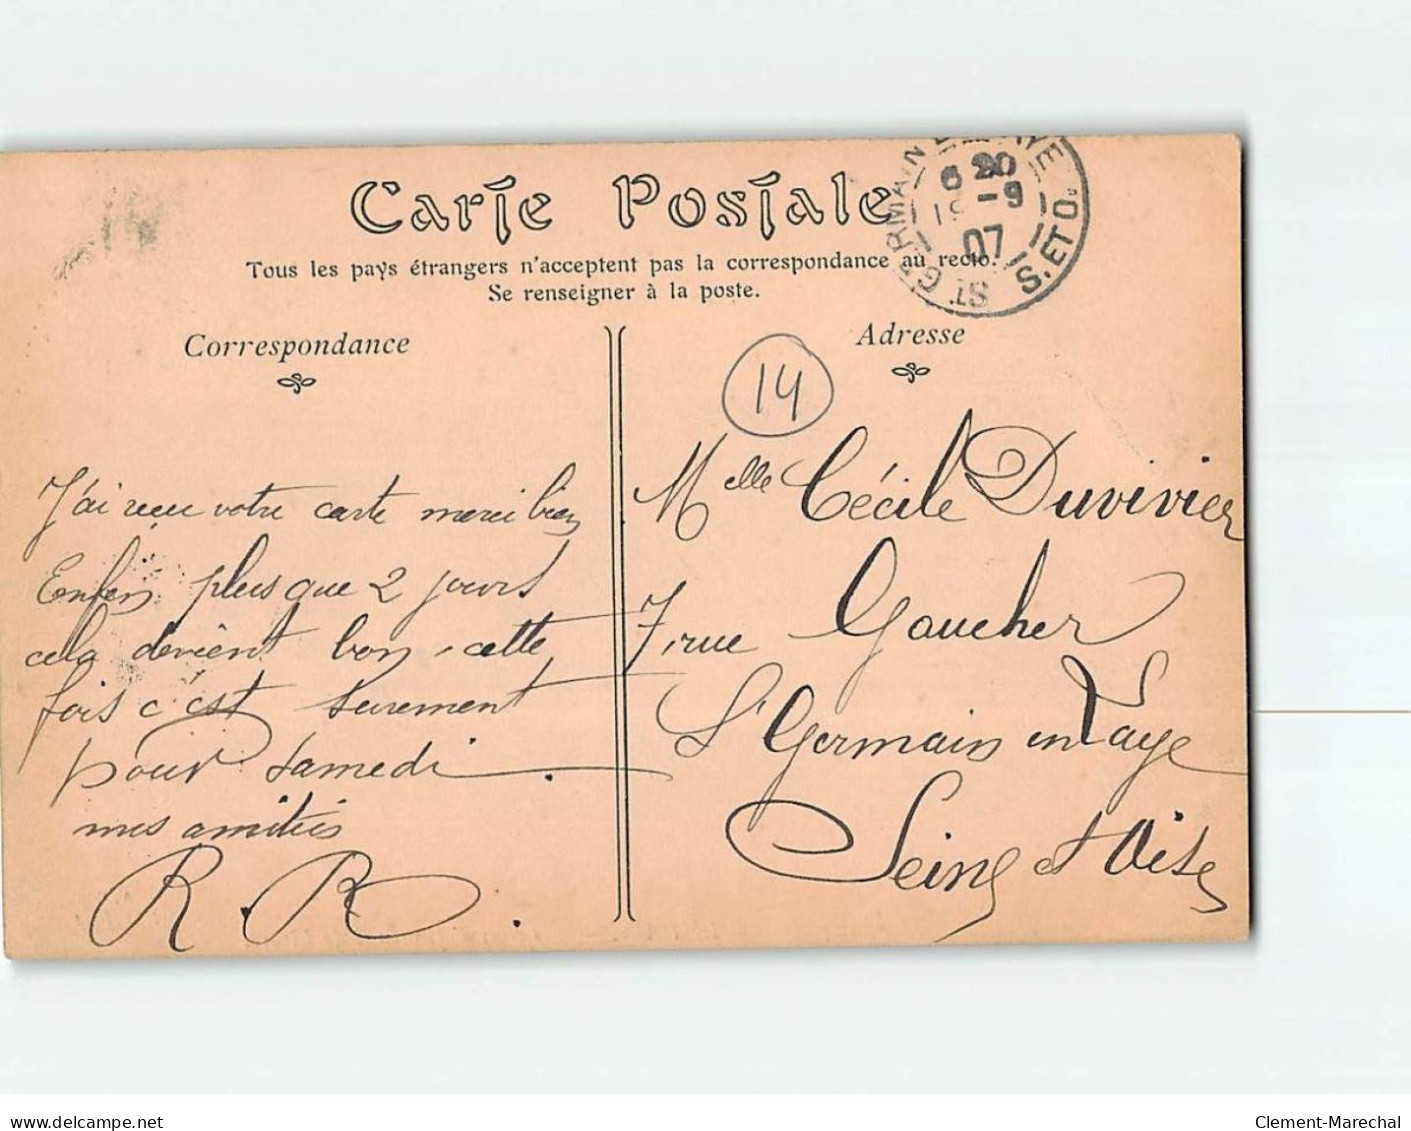 Carte Postale
Tous les pays étrangers n'acceptent pas la correspondance au recto.
Se renseigner à la poste.
ST GERMAIN EN LAYE S. ET O.
6 20
-9
07
Correspondance
J'ai reçu votre carte merci bien
Enfin plus que 2 jours
cela devient bon, cette
fois c'est surement
pour samedi.
mes amitiés
R. R.
Adresse
14
Melle Cécile Duvivier
7, rue Gaucher
St Germain en Laye
Seine et Oise
www.delcampe.net
Clement-Marechal